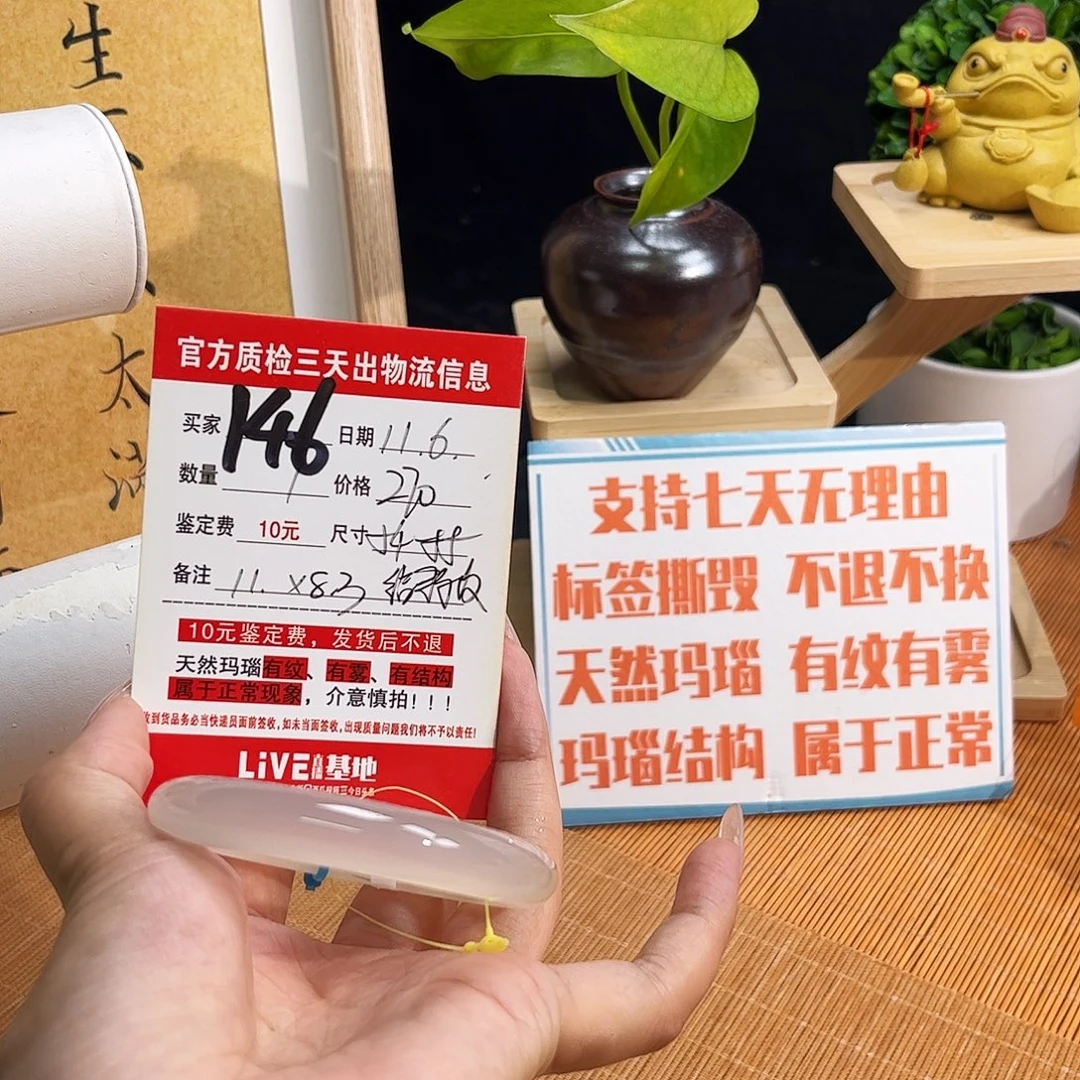 生
太
官方质检三天出物流信息
买家 146 日期 11.6.
数量 1 价格
鉴定费 10元 尺寸
备注 11. ×8.3
10元鉴定费，发货后不退
天然玛瑙有纹、有雾、有结构
属于正常现象，介意慎拍！！！
收到货品务必当快递员面前签收，如未当面签收，出现质量问题我们将不予以责任！
LiVE直播基地
支持七天无理由
标签撕毁 不退不换
天然玛瑙 有纹有雾
玛瑙结构 属于正常